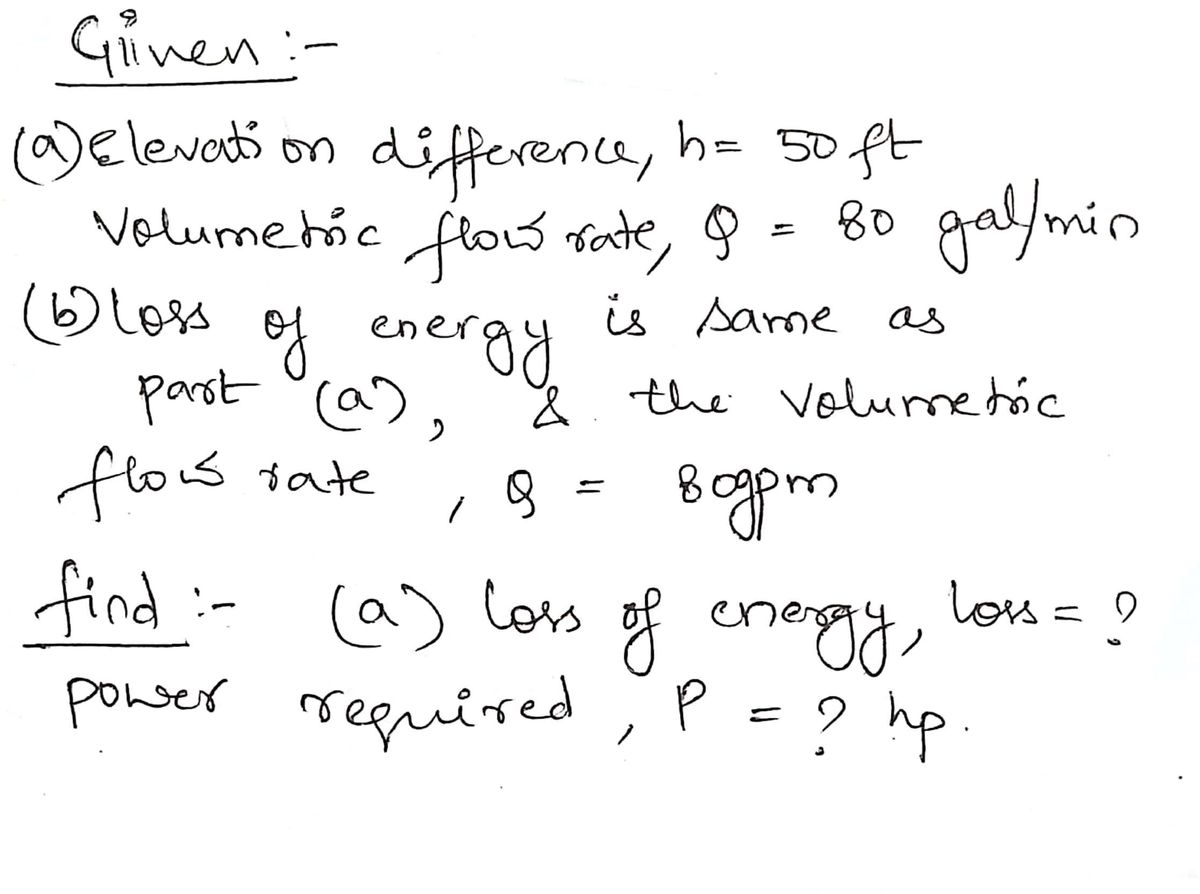 Given :-
(a) Elevation difference, h = 50 ft
Volumetric flow rate, Q = 80 gal/min
(b) loss of energy is same as
part (a), & the volumetric
flow rate, Q = 80gpm
find :- (a) loss of energy, loss = ?
power required, P = ? hp.